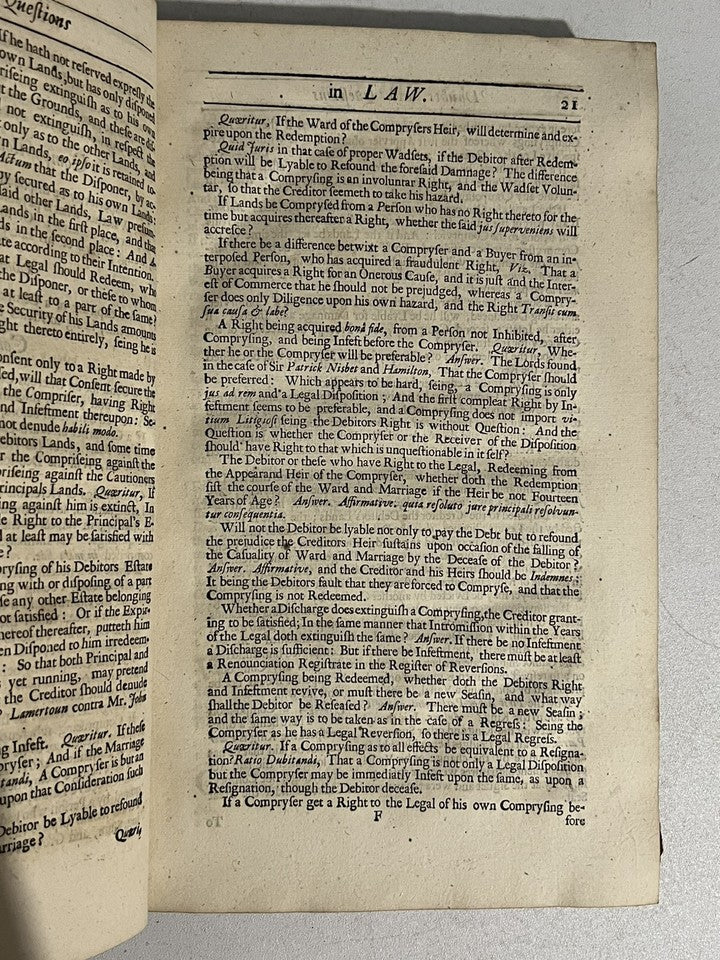 Questions
If he hath not reserved expresly the
own Lands, but has only disposed
at the Grounds, and these are dis
priseing extinguish as to his own
not extinguish, in respect the
only as to the other Lands, and
wn Lands, eo ipso it is retained to-
Actum that the Disponer, by ac-
by secured as to his own Lands:
said other Lands, Law presum
Lands in the first place, and the
ds in the second place: And a
ate according to their Intention.
at Legal should Redeem, who
the Disponer, or these to whom
at least to a part of the same?
e Security of his Lands amounts
ght thereto entirely, seing he is
onsent only to a Right made by
sed, will that Consent secure the
the Compriser, having Right
and Infeftment thereupon: Se-
not denude habili modo.
ebitors Lands, and some time
er the Compriseing against the
priseing against the Cautioners
rincipals Lands. Quæritur, If
g against him is extinct, In
le Right to the Principal's E-
d at least may be satisfied with
e?
prysing of his Debitors Estate
ng with or disposing of a part
se any other Estate belonging
not satisfied: Or if the Expi-
hereof thereafter, putteth him
en Disponed to him irredeem-
: So that both Principal and
s yet running, may pretend
the Creditor should denude
? Lamertoun contra Mr. John
ng Infeft. Quæritur. If these
pryser; And if the Marriage
tandi, A Compryser is but an
upon that Consideration such
Debitor be Lyable to refound
arriage?
Quæri,
in LAW.
21
Quæritur, If the Ward of the Comprysers Heir, will determine and ex-
pire upon the Redemption?
Quid Juris in that case of proper Wadsets, if the Debitor after Redem-
ption will be Lyable to Refound the foresaid Damnage? The difference
being that a Comprysing is an involuntar Right, and the Wadset Volun-
tar, so that the Creditor seemeth to take his hazard.
If Lands be Comprysed from a Person who has no Right thereto for the
time but acquires thereafter a Right, whether the said jus superveniens will
accresce?
If there be a difference betwixt a Compryser and a Buyer from an in-
terposed Person, who has acquired a fraudulent Right, Viz. That a
Buyer acquires a Right for an Onerous Cause, and it is just and the Inter-
est of Commerce that he should not be prejudged, whereas a Compry-
ser does only Diligence upon his own hazard, and the Right Transit cum
sua causa & labe?
A Right being acquired bona fide, from a Person not Inhibited, after
Comprysing, and being Infeft before the Compryser. Quæritur, Whe-
ther he or the Compryser will be preferable? Answer. The Lords found
in the case of Sir Patrick Nisbet and Hamilton, That the Compryser should
be preferred: Which appears to be hard, seing, a Comprysing is only
jus ad rem and a Legal Disposition; And the first compleat Right by In-
feftment seems to be preferable, and a Comprysing does not import vi-
tium Litigiosi seing the Debitors Right is without Question: And the
Question is whether the Compryser or the Receiver of the Disposition
should have Right to that which is unquestionable in it self?
The Debitor or these who have Right to the Legal, Redeeming from
the Appearand Heir of the Compryser, whether doth the Redemption
sist the course of the Ward and Marriage if the Heir be not Fourteen
Years of Age? Answer. Affirmative. quia resoluto jure principali resolvun-
tur consequentia.
Will not the Debitor be lyable not only to pay the Debt but to refound
the prejudice the Creditors Heir sustains upon occasion of the falling of
the Casuality of Ward and Marriage by the Decease of the Debitor?
Answer. Affirmative, and the Creditor and his Heirs should be Indemnes:
It being the Debitors fault that they are forced to Compryse, and that the
Comprysing is not Redeemed.
Whether a Discharge does extinguish a Comprysing, the Creditor grant-
ing to be satisfied; In the same manner that Intromission within the Years
of the Legal doth extinguish the same? Answer. If there be no Infeftment
a Discharge is sufficient: But if there be Infeftment, there must be at least
a Renounciation Registrate in the Register of Reversions.
A Comprysing being Redeemed, whether doth the Debitors Right
and Infeftment revive, or must there be a new Seasin, and what way
shall the Debitor be Reseased? Answer. There must be a new Seasin;
and the same way is to be taken as in the case of a Regress: Seing the
Compryser as he has a Legal Reversion, so there is a Legal Regress.
Quæritur. If a Comprysing as to all effects be equivalent to a Resigna-
tion? Ratio Dubitandi, That a Comprysing is not only a Legal Disposition
but the Compryser may be immediatly Infeft upon the same, as upon a
Resignation, though the Debitor decease.
If a Compryser get a Right to the Legal of his own Comprysing be-
F
fore